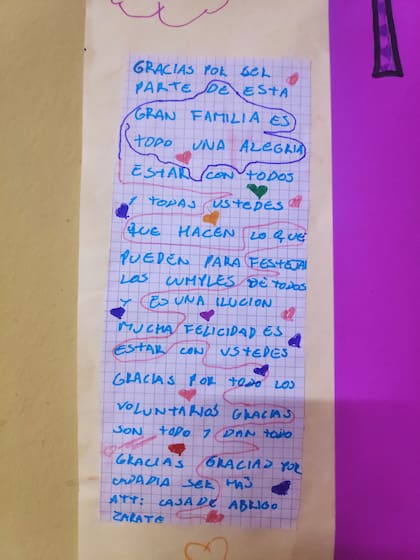 GRACIAS POR SER
PARTE DE ESTA
GRAN FAMILIA ES
TODO UNA ALEGRIA
ESTAR CON TODOS
Y TODAS USTEDES
QUE HACEN LO QUE
PUEDEN PARA FESTEJAR
LOS CUMPLES DE TODOS
Y ES UNA ILUCION
MUCHA FELICIDAD ES
ESTAR CON USTEDES
GRACIAS POR TODO LOS
VOLUNTARIOS GRACIAS
SON TODO Y DAN TODO
GRACIAS GRACIAS POR
CADADIA SER MAS
ATT: CASA DE ABRIGO
ZARATE